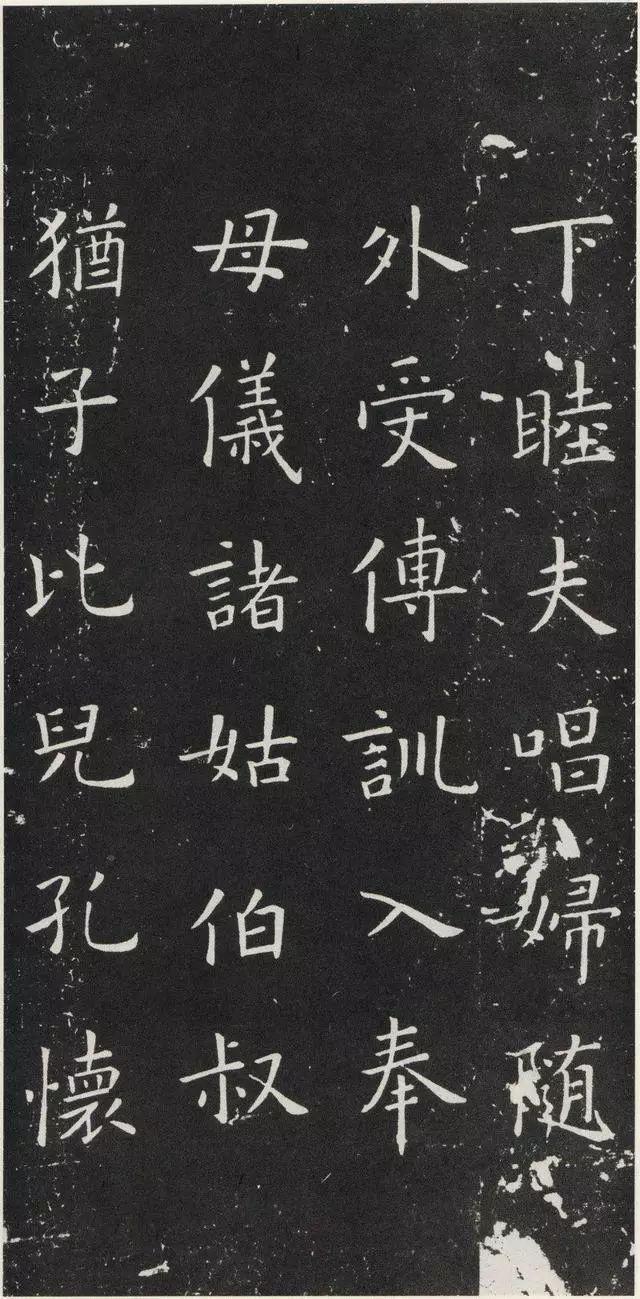 下睦夫唱婦随
外受傅訓入奉
母儀諸姑伯叔
猶子比兒孔懷